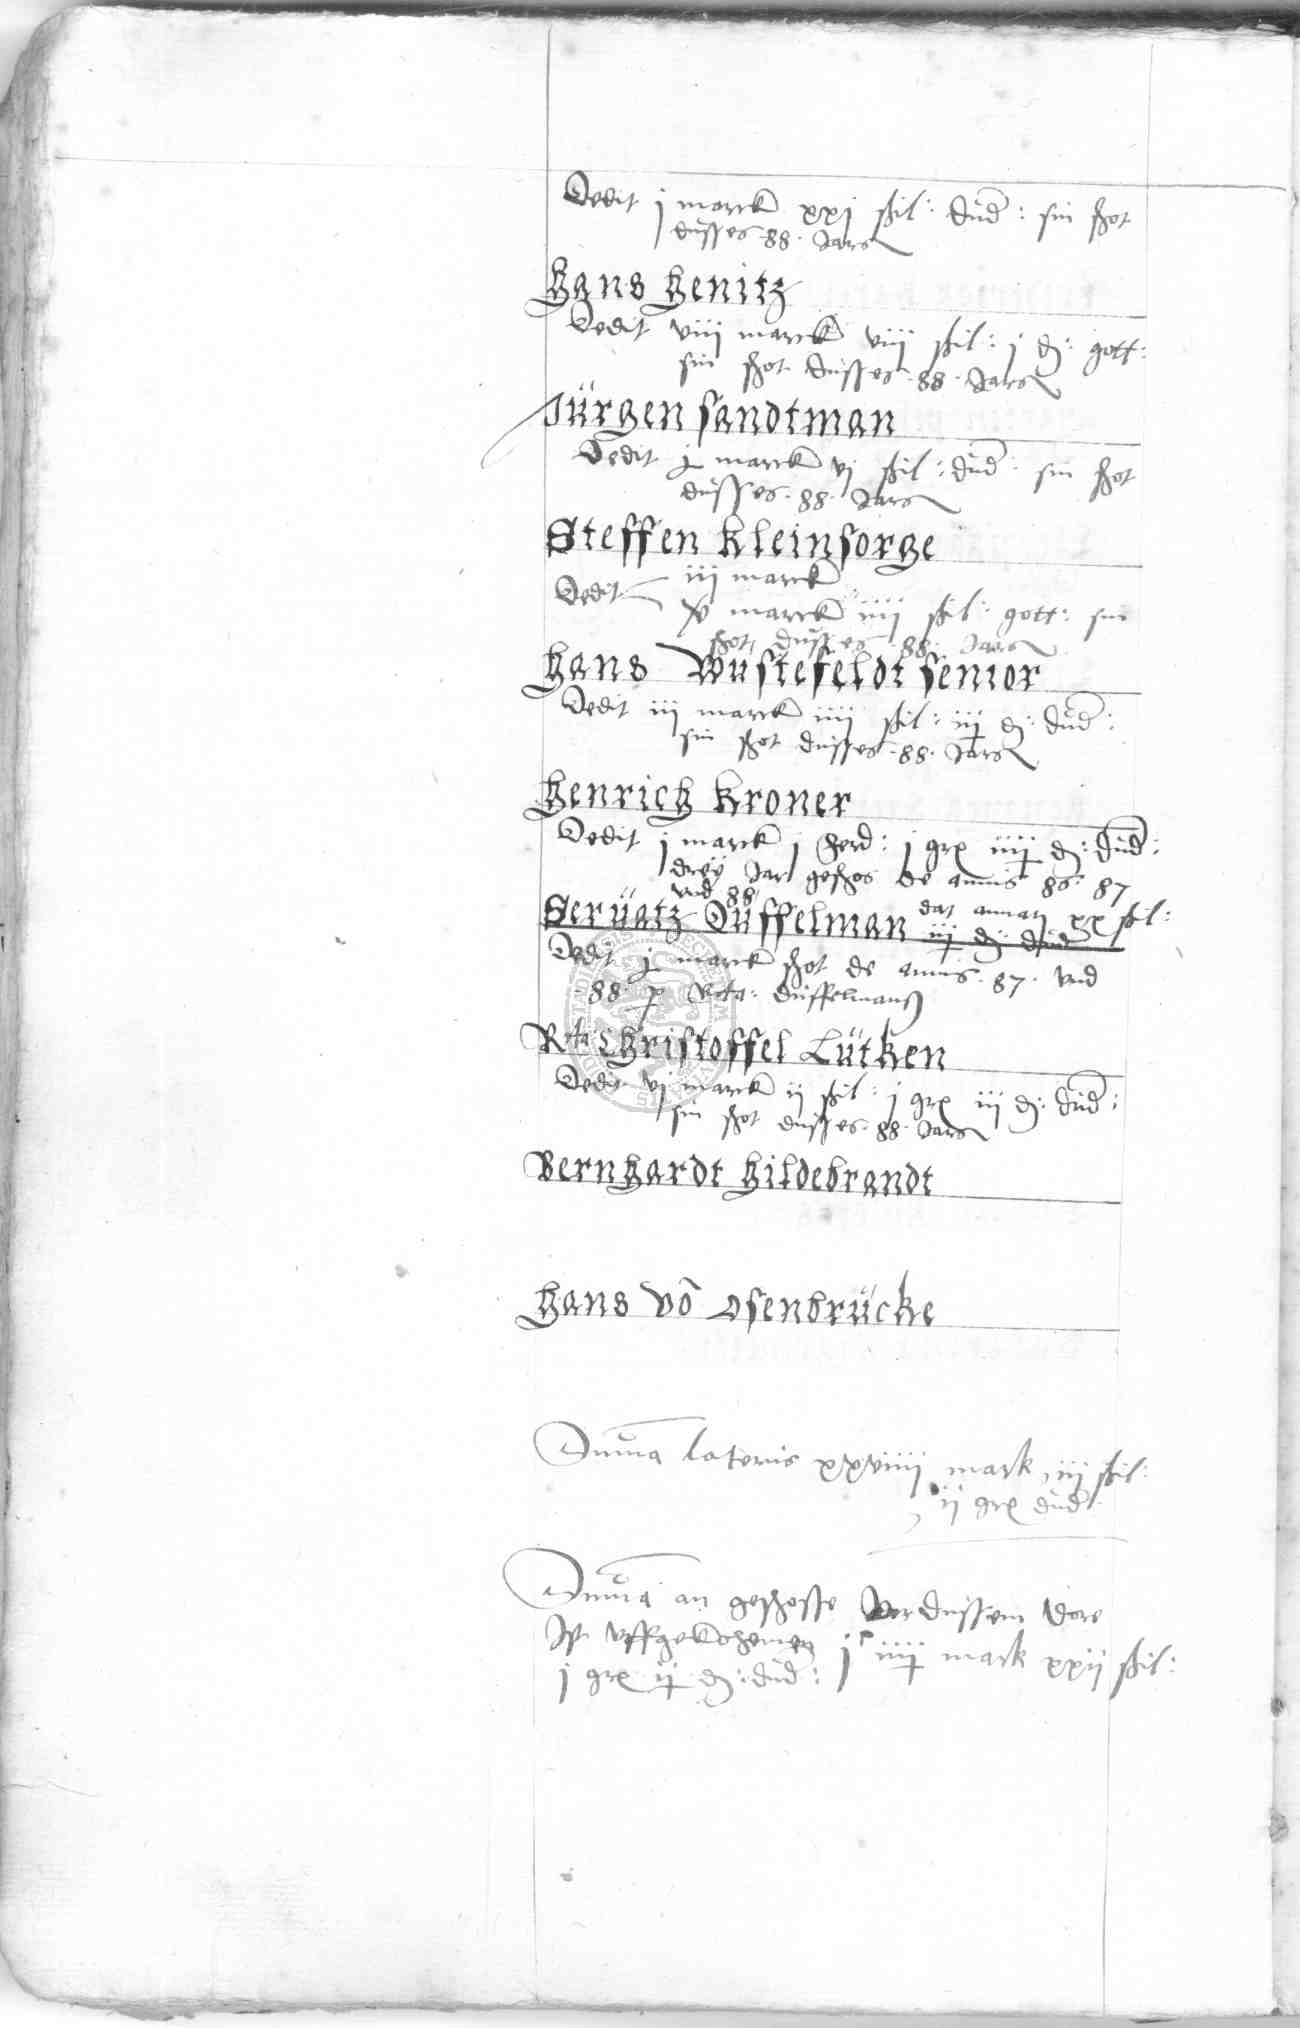 Dedit j marck xxj schil: dud: sin schot
dusses 88. Jars
Hans Henitz
Dedit viii marck viii schil: j d: gott:
sin schot dusses .88. Jars
Jürgen Sandtman
Dedit j marck vj schil: dud: sin schot
dusses .88. Jars
Steffen Kleinsorge
iii marck
Dedit v marck iiii schil: gott: sin
schot dusses .88. Jars
Hans Wustefeldt senior
Dedit iii marck iiii schil: iij d: dud:
sin schot dusses .88. Jars
Henrich Kroner
Dedit j marck j ferd: j gr iiij d: dud:
drey Jar geschos de annis 86. 87
vnd 88
Seruatz Duffelman dat annat xx schil:
iij d: dud
Dedit j marck schot de annis .87. vnd
.88. p Duffelmans
Rta Christoffel Lütken
Dedit vj marck ij schil: j gr iij d: dud:
sin schot dusses .88. Jars
Bernhardt Hildebrandt
Hans võ Osenbrücke
Summa lateris xxviiii mark, iij schil:
ij gr dud
Summa an geschosse vor dussem dore
Ist vffgekohemen jc iiij mark xxij schil:
j gr ij d: dud: